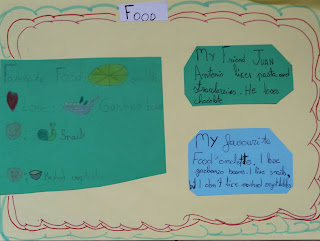 FOOD
Favourite Food
Garbanzo beans
Snails
My Friend JUAN
Antonio likes pasta and
strawberries. He loves
chocolate
My favourite
Food omelette. I love
garbanzo beans. I like snails,
I don't like mashed vegetables